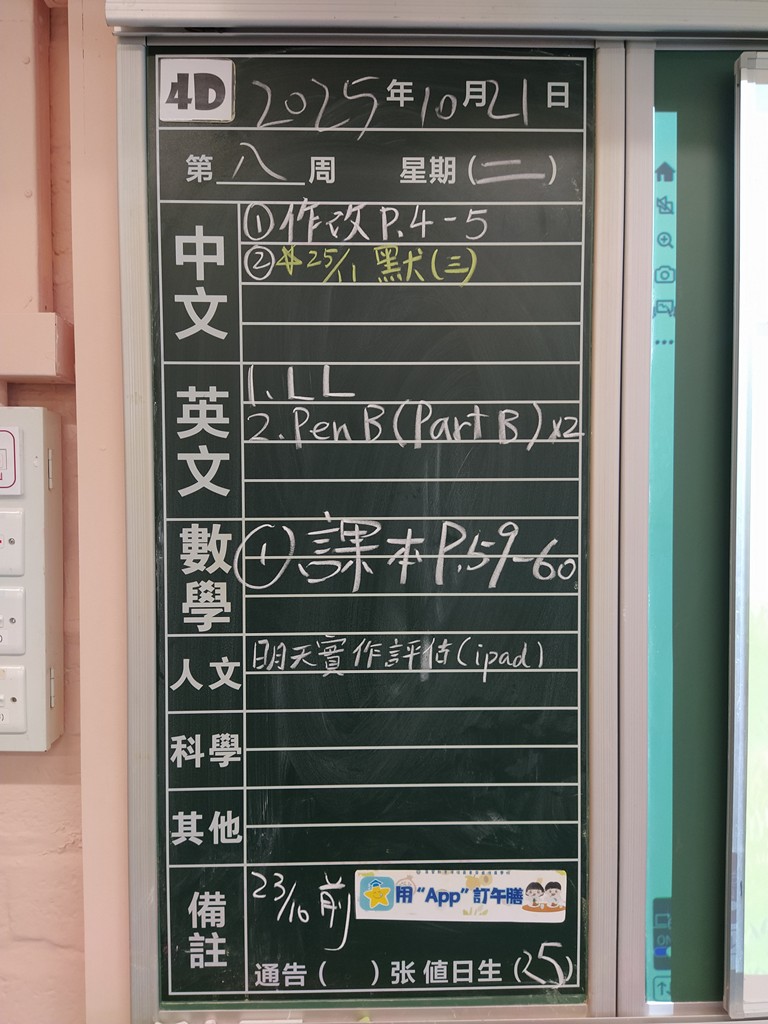 4D 2025年10月21日
第八周 星期(二)
中文
①作改P.4-5
②*25/11 默(三)
英文
1. LL
2. Pen B (Part B) x2
數學
①課本P.59-60
人文
明天實作評估(ipad)
科學
其他
備註
23/10前
用“App”訂午膳
通告( )张 值日生(25)